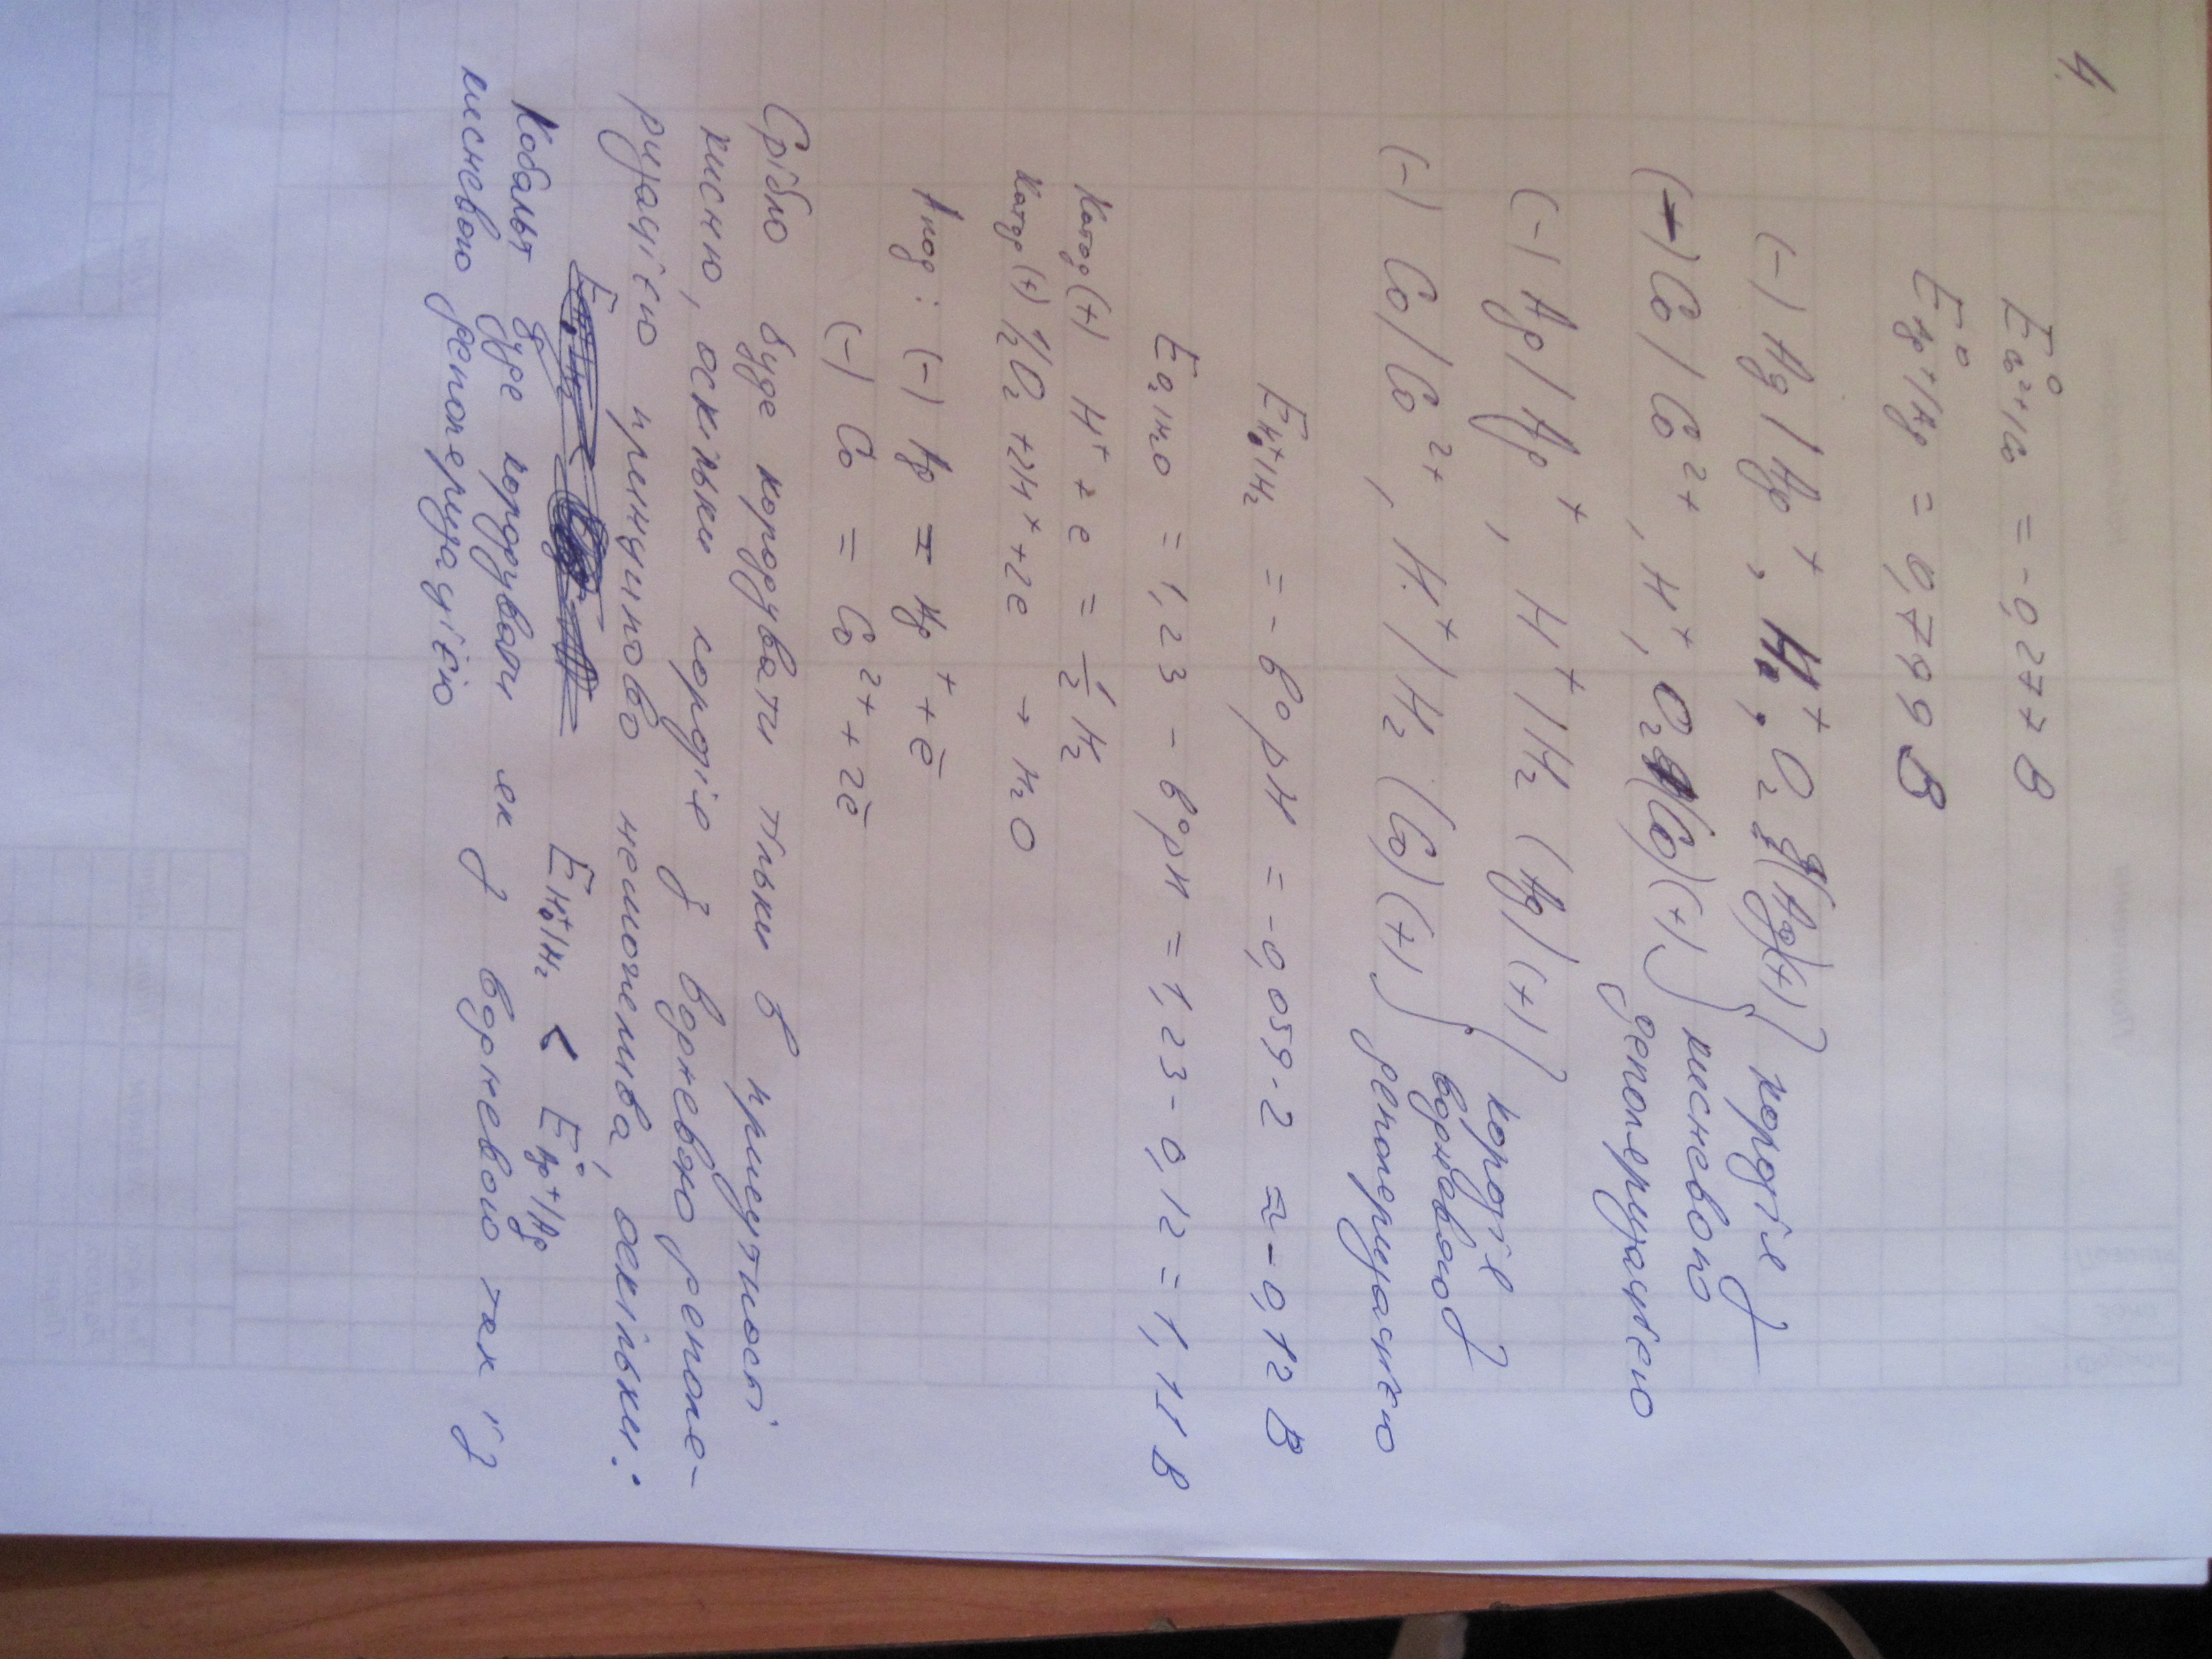 4.
E°Co²⁺/Co = -0,277 В
E°Ag⁺/Ag = 0,799 В
(-) Ag / Ag⁺, H⁺, O₂ (Ag)(+) } корозія з
(-) Co / Co²⁺, H⁺, O₂ (Co)(+) } кисневою
деполяризацією
(-) Ag / Ag⁺, H⁺/H₂ (Ag)(+) } корозія з
водневою
(-) Co / Co²⁺, H⁺/H₂ (Co)(+) } деполяризацією
E H⁺/H₂ = -b° pH = -0,059·2 ≈ -0,12 В
E O₂/H₂O = 1,23 - b° pH = 1,23 - 0,12 = 1,11 В
Катод (+) H⁺ + e = ½ H₂
Катод (+) ½O₂ + 2H⁺ + 2e → H₂O
Анод: (-) Ag = Ag⁺ + ē
(-) Co = Co²⁺ + 2ē
Срібло буде кородувати тільки в присутності
кисню, оскільки корозія з водневою деполя-
ризацією принципово неможлива, оскільки:
E H⁺/H₂ < E°Ag⁺/Ag
Кобальт буде кородувати як з водневою так і з
кисневою деполяризацією